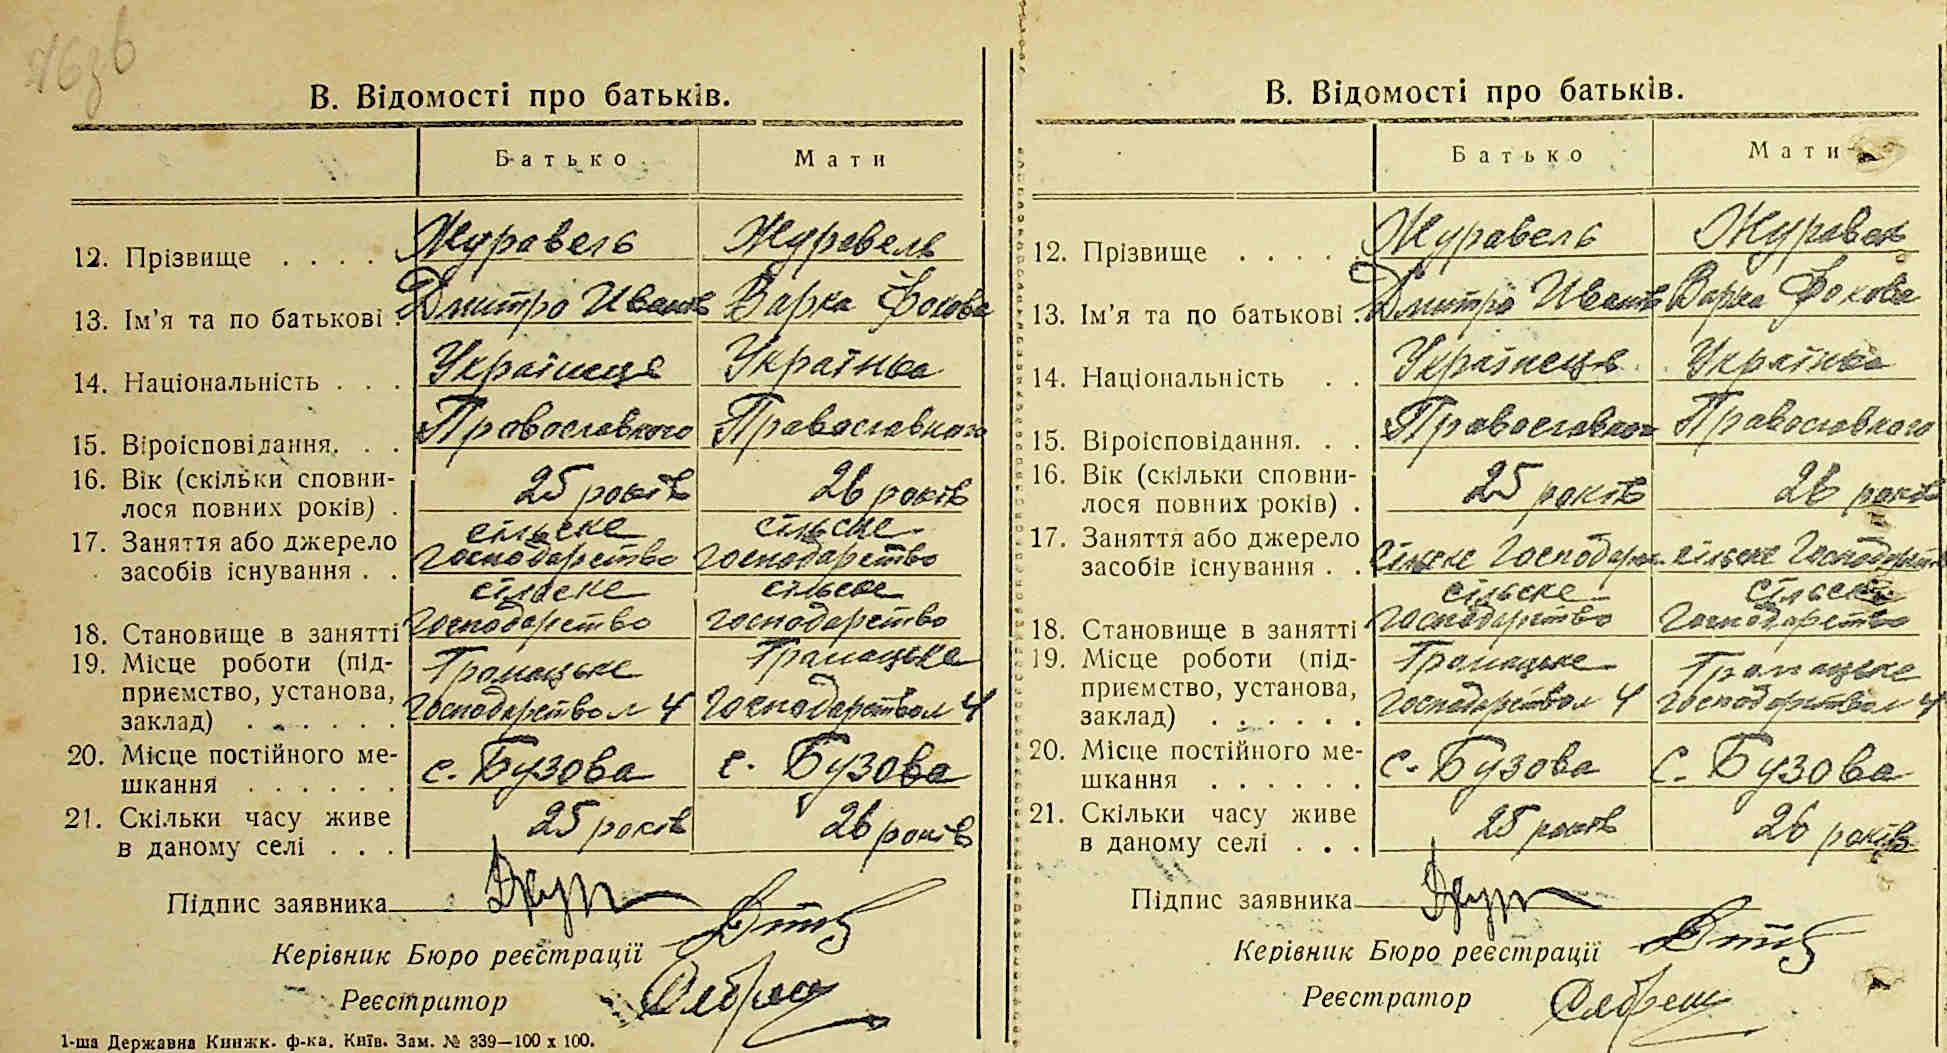 763б
В. Відомості про батьків.
Батько Мати
12. Прізвище . . . . Журавель Журавель
13. Ім'я та по батькові . Дмитро Иванів Варка Фокова
14. Національність . . . Українець Українка
15. Віроісповідання. . . Православного Православного
16. Вік (скільки сповни-
лося повних років) . 25 років 26 років
17. Заняття або джерело сільске сільске
засобів існування . . Господарство господарство
сільске сільске
18. Становище в занятті Господарство господарство
19. Місце роботи (під- Грамацьке Грамацьке
приємство, установа,
заклад) . . . . . . Господарством 4 Господарством 4
20. Місце постійного ме-
шкання . . . . . . с. Бузова с. Бузова
21. Скільки часу живе
в даному селі . . . 25 років 26 років
Підпис заявника
Керівник Бюро реєстрації
Реєстратор
1-ша Державна Книжк. ф-ка. Київ. Зам. № 339—100 х 100.
В. Відомості про батьків.
Батько Мати
12. Прізвище . . . . . Журавель Журавель
13. Ім'я та по батькові . Дмитро Иванів Варка Фокова
14. Національність . . Українець Українка
15. Віроісповідання. . . Православного Православного
16. Вік (скільки сповни-
лося повних років) . 25 років 26 років
17. Заняття або джерело
засобів існування . . Сільске Господар. сільске Господарств
сільске сільске
18. Становище в занятті Господарство Господарство
19. Місце роботи (під- Грамацьке Грамацьке
приємство, установа,
заклад) . . . . . . Господарством 4 Господарством 4
20. Місце постійного ме-
шкання . . . . . . с. Бузова с. Бузова
21. Скільки часу живе
в даному селі . . . 25 років 26 років
Підпис заявника
Керівник Бюро реєстрації
Реєстратор